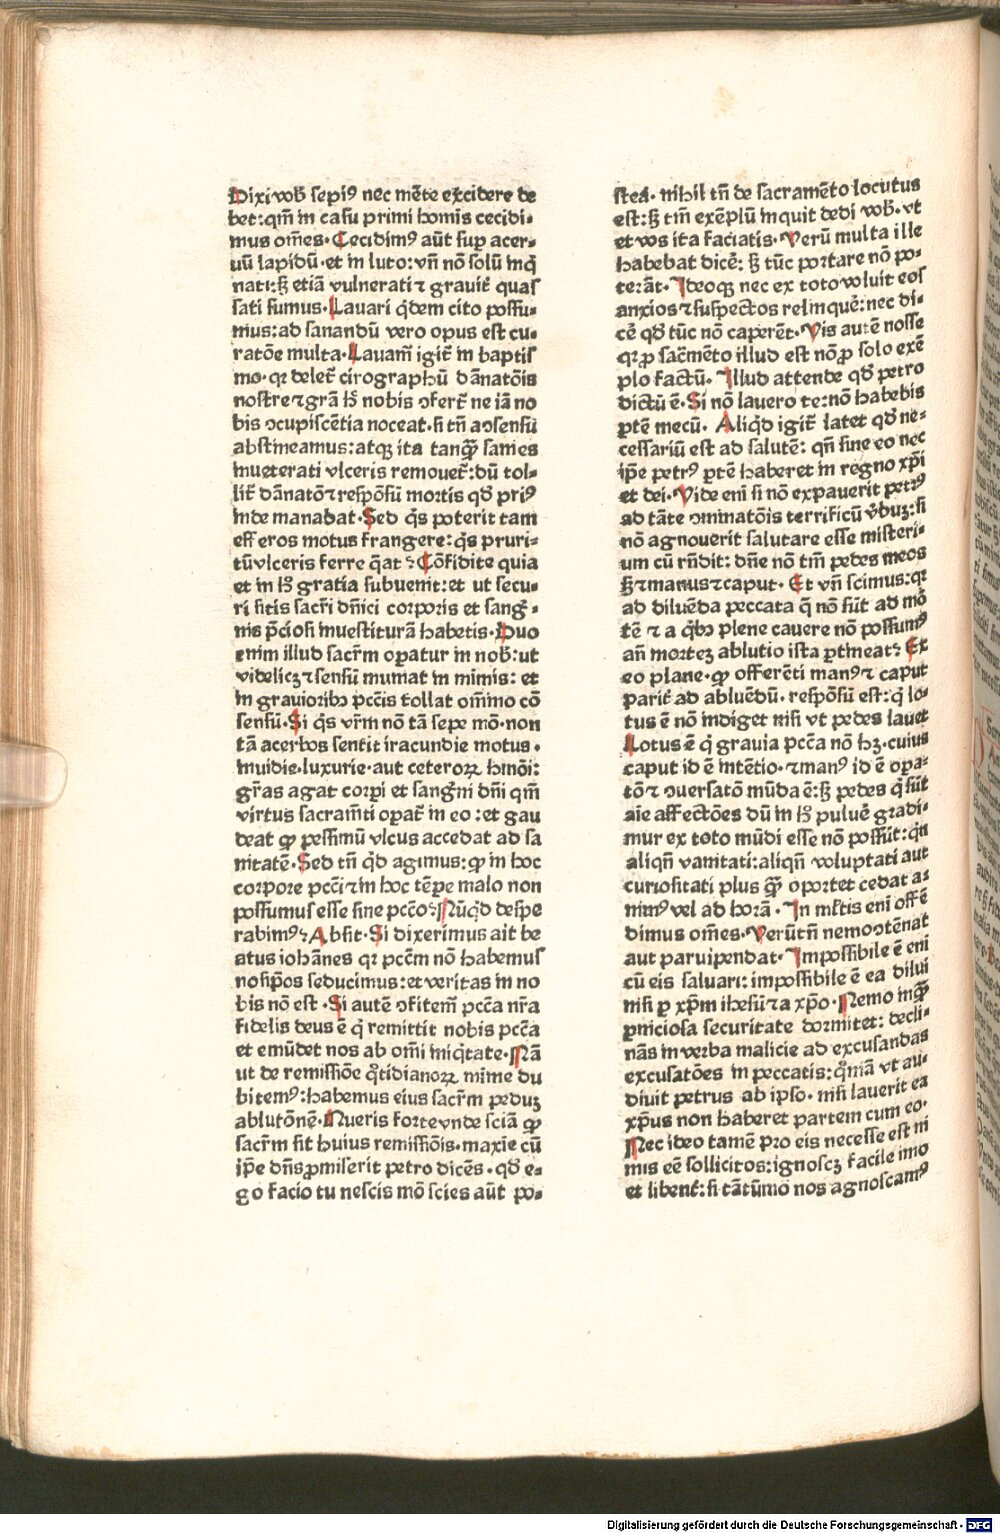 Dixi vob̄ sepiꝰ nec mēte excidere de
bet: qm̄ in casu primi homīs cecidi⸗
mus om̄es. Cecidimꝰ aūt suꝑ acer⸗
uū lapidū. et in luto: vn̄ nō solū inq̄
nati: ꝫ etiā vulnerati ⁊ grauit̄ quas
sati sumus. Lauari q̄dem cito possu⸗
mus: ad sanandū vero opus est cu⸗
ratōe multa. Lauam̄ igit̄ in baptis
mo. qꝛ delet̄ cirographū dānatōis
nostre ⁊ grā h̄ nobis ꝯfert̄ ne iā no
bis ꝯcupiscētia noceat. si tn̄ a ꝯsensu
abstineamus: atqꝫ ita tanqꝫ̄ sanies
inueterati vlceris remouet̄: dū tol⸗
lit̄ dānatō ⁊ respōsū mortis qd̄ priꝰ
inde manabat. Sed q̄s poterit tam
efferos motus frangere: q̄s pruri⸗
tū vlceris ferre q̄at? Cōfidite quia
et in h̄ gratia subuenit: et ut secu⸗
ri sitis sacr̄i dn̄ici corporis et sanḡ⸗
nis p̄ciosi inuestiturā habetis. Duo
enim illud sacr̄m oꝑatur in nob̄: ut
videlicꝫ ⁊ sensū minuat in minimis: et
in grauioribꝫ pcc̄is tollat om̄imo cō
sensū. Si q̄s vr̄m nō tā sepe mō. non
tā acerbos sentit iracundie motus.
inuidie. luxurie. aut ceteroꝝ hm̄oi:
gr̄as agat corꝑi et sangn̄i dn̄i qm̄
virtus sacram̄ti oꝑat̄ in eo: et gau
deat ꝙ pessimū vlcus accedat ad sa
nitatē. Sed tn̄ qd̄ agimus: ꝙ in hoc
corpore pcc̄i ⁊ in hoc tēpe malo non
possumus esse sine pcc̄o? Nūqd̄ despe
rabimꝰ? Absit. Si dixerimus ait be
atus iohānes qꝛ pcc̄m nō habemus
nosip̄os seducimus: et veritas in no
bis nō est. Si autē ꝯfitem̄ pcc̄a nr̄a
fidelis deus ē q̄ remittit nobis pcc̄a
et emūdet nos ab om̄i iniq̄tate. Nā
ut de remissiōe q̄tidianoꝝ mīme du
bitemꝰ: habemus eius sacr̄m peduꝫ
ablutōnē. Queris forte vnde sciā ꝙ
sacr̄m sit huius remissiōis. maxīe cū
ip̄e dn̄s ꝓmiserit petro dicēs. qd̄ e⸗
go facio tu nescis mō scies aūt po⸗
stea. nihil tn̄ de sacramēto locutus
est: ꝫ tm̄ exēplū inquit dedi vob̄. vt
et vos ita faciatis. Verū multa ille
habebat dicē: ꝫ tūc portare nō po⸗
terāt. Ideoqꝫ nec ex toto voluit eos
anxios ⁊ suspectos relinquē: nec di⸗
cē qd̄ tūc nō caperēt. Vis autē nosse
qꝛ ꝓ sac̄mēto illud est nō ꝓ solo exē
plo factū. Illud attende qd̄ petro
dictū ē. Si nō lauero te: nō habebis
ꝑtē mecū. Aliqd̄ igit̄ latet qd̄ ne⸗
cessariū est ad salutē: qn̄ sine eo nec
ip̄e petrꝰ ꝑtē haberet in regno xp̄i
et dei. Vide eni si nō expauerit petrꝰ
ad tāte ꝯminatōis terrificū v̄buꝫ: si
nō agnouerit salutare esse misteri⸗
um cū rn̄dit: dn̄e nō tm̄ pedes meos
ꝫ ⁊ manus ⁊ caput. Et vn̄ scimus: qꝛ
ad diluēda peccata q̄ nō sūt ad mō
tē ⁊ a qibꝫ plene cauere nō possumꝰ
an̄ mortē ablutio ista ꝑtineat? Ex
eo plane. ꝙ offerēti manꝰ ⁊ caput
parit̄ ad abluēdū. respōsū est: q̄ lo⸗
tus ē nō indiget nisi vt pedes lauet
Lotus ē q̄ grauia pcc̄a nō hꝫ. cuius
caput id ē intētio. ⁊ manꝰ id ē oꝑa⸗
tō ⁊ ꝯuersatō mūda ē: ꝫ pedes q̄ sūt
aīe affectōes dū in h̄ puluē gradi⸗
mur ex toto mūdi esse nō possūt: qn̄
aliqn̄ vanitati: aliqn̄ voluptati aut
curiositati plus qꝫ̄ oportet cedat a⸗
nimꝰ vel ad horā. In ml̄tis eni offē
dimus om̄es. Verūtn̄ nemo ꝯtēnat
aut paruipendat. Impossibile ē eni
cū eis saluari: impossibile ē ea dilui
nisi ꝑ xp̄m ihesū ⁊ a xp̄o. Nemo inqꝫ̄
ꝑniciosa securitate dormitet: decli⸗
nās in verba malicie ad excusandas
excusatōes in peccatis: qm̄ vt au⸗
diuit petrus ab ipso. nisi lauerit ea
xp̄us non haberet partem cum eo.
Nec ideo tamē pro eis necesse est ni
mis eē sollicitos: ignoscꝫ facile imo
et libent̄: si tātūmo nos agnoscamꝰ
Digitalisierung gefördert durch die Deutsche Forschungsgemeinschaft - DFG